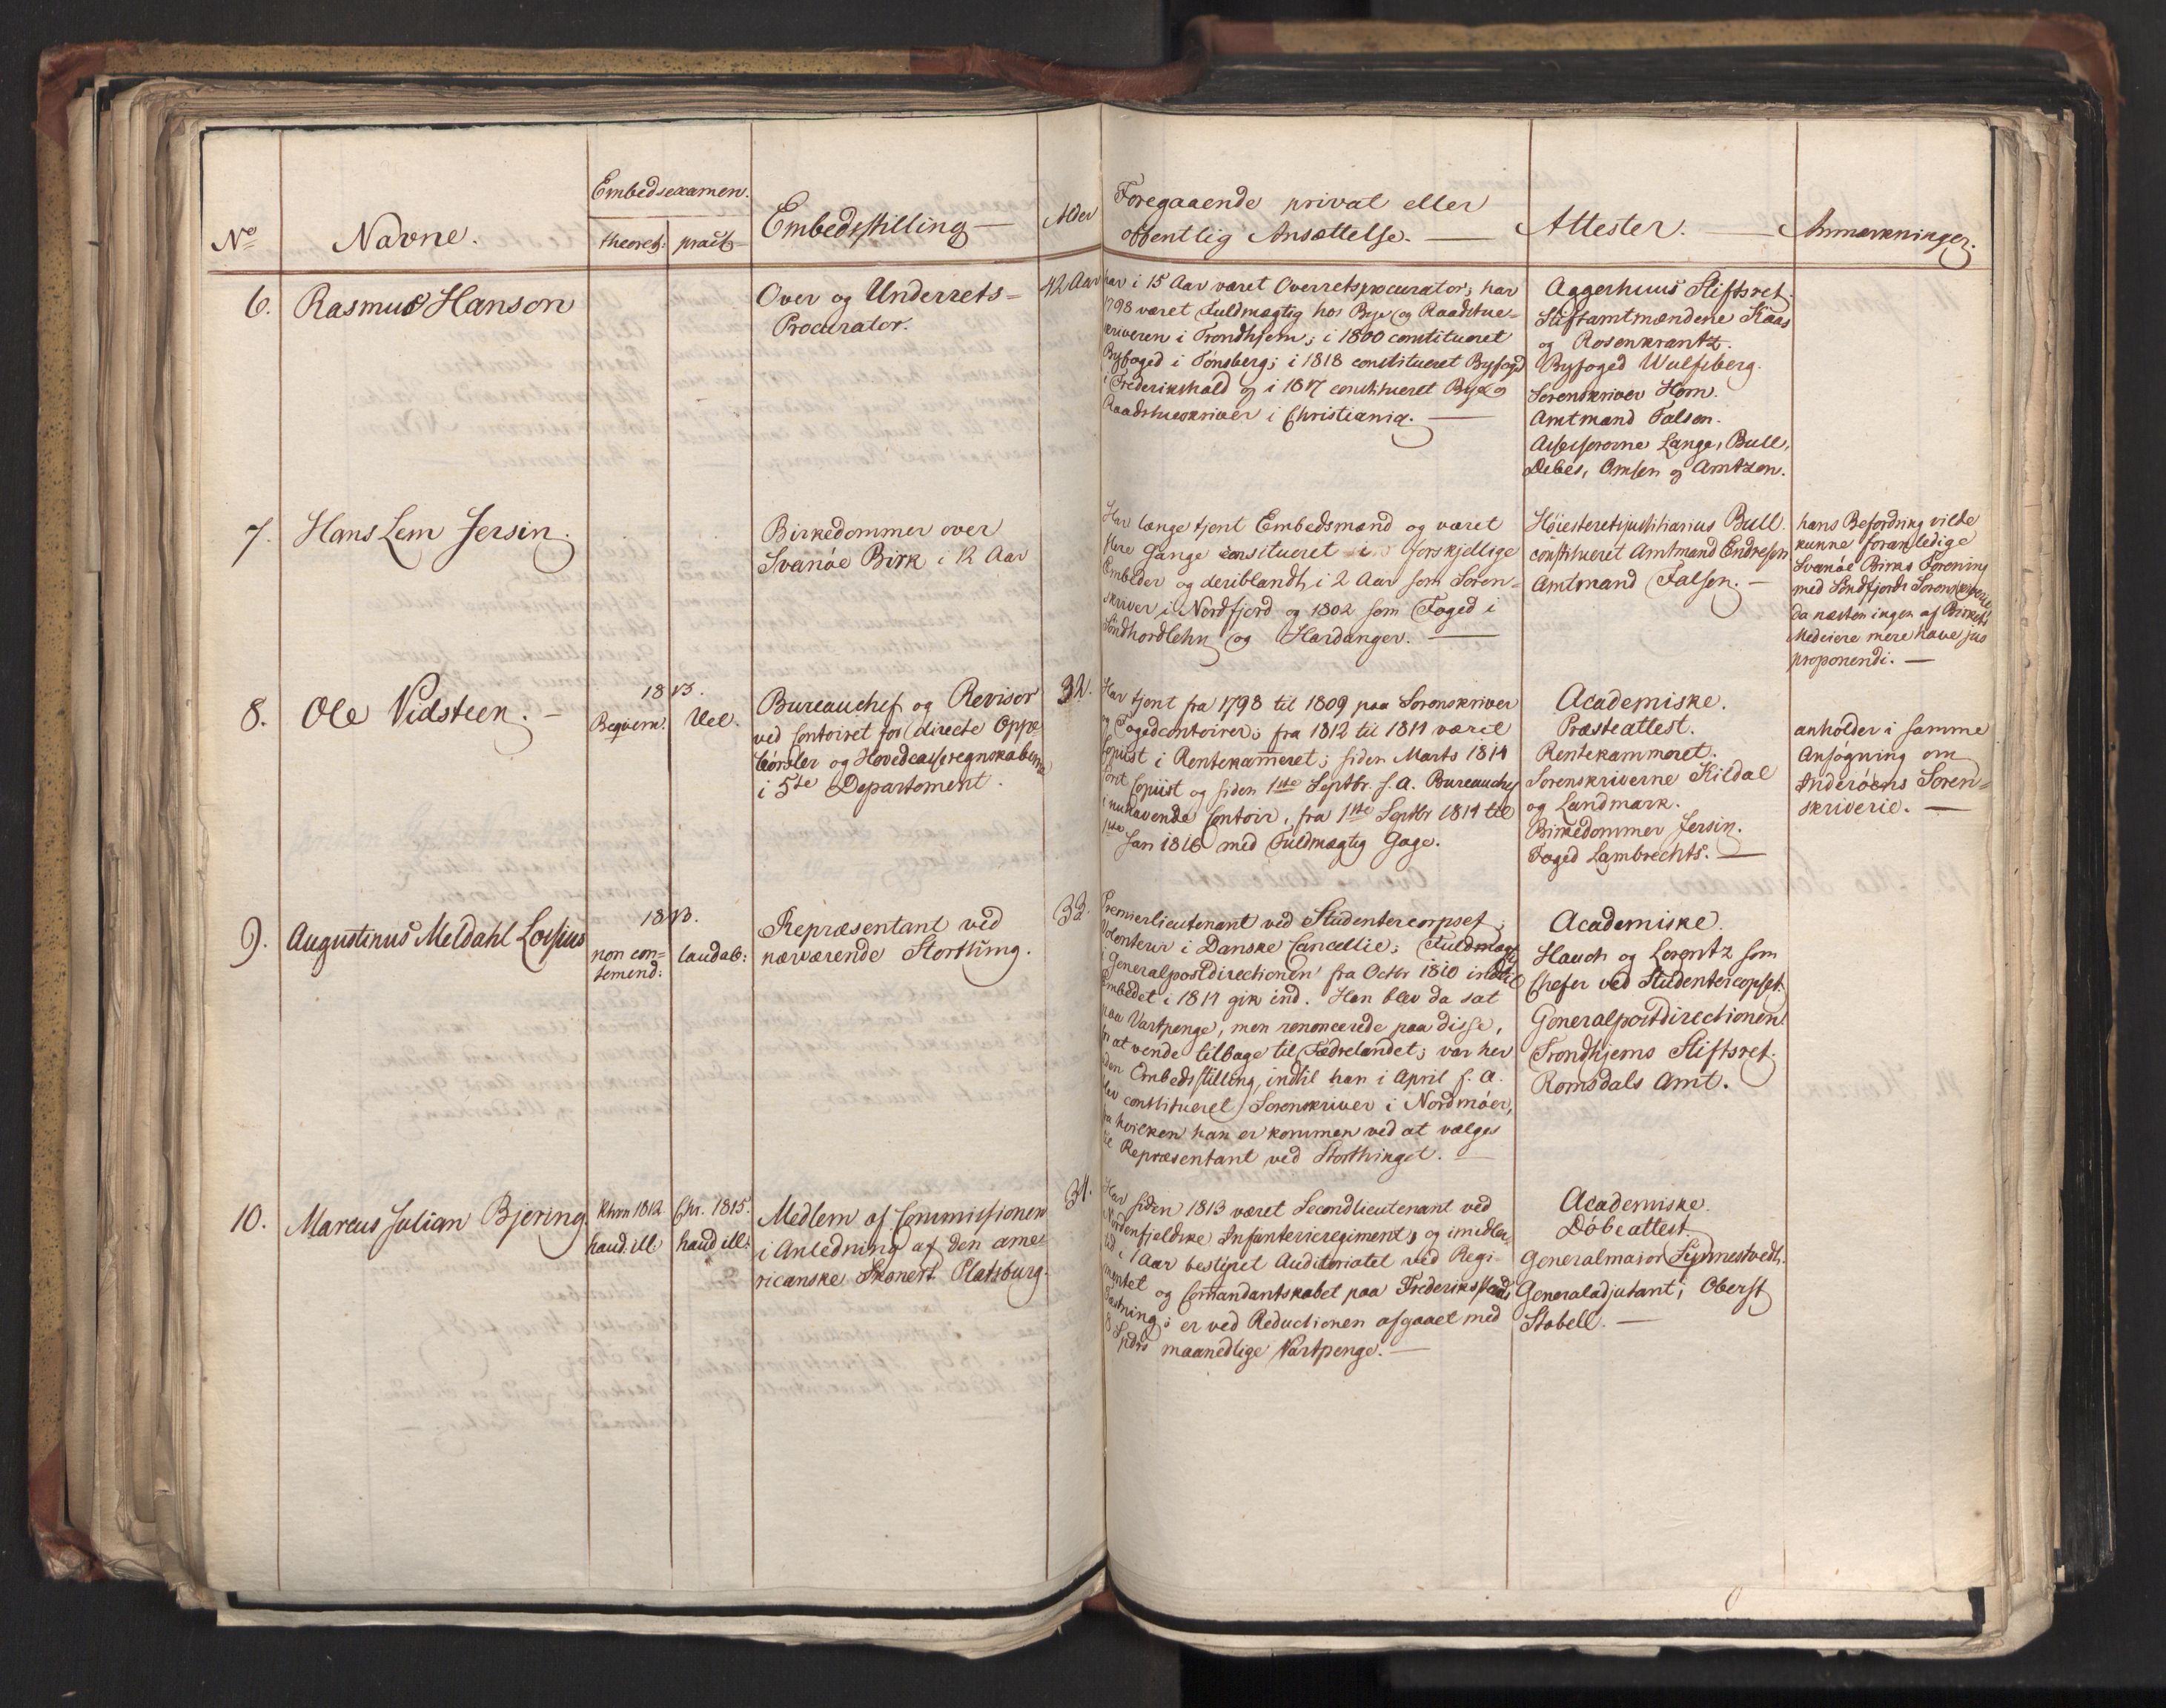 No
Navne.
Embedsexamen.
theoret: pract:
Embedsstilling
Alder
Foregaaende privat eller
offentlig Ansættelse.
Attester.
Anmærkninger.
6. Rasmus Hanson
Over og Underrets-
Procurator.
42 Aar
har i 15 Aar været Overretsprocurator; har
1798 været Fuldmægtig hos Bye og Raadstue-
skriveren i Trondhjem; i 1800 constitueret
Byfoged i Tønsberg; i 1818 constitueret Byfoged
i Frederikshald og i 1817 constitueret Bye og
Raadstueskriver i Christiania.
Aggerhuus Stiftsret.
Stiftamtmændene Kaas
og Rosenkrantz.
Byfoged Wulfsberg.
Sorenskriver Horn.
Amtmand Falsen.
Assessorerne Lange, Bull,
Debes, Omsen og Arntzen.
7. Hans Lem Jersin.
Birkedommer over
Svanøe Birk i 12 Aar
Har længe tjent Embedsmænd og været
flere Gange constitueret i forskjellige
Embeder og deriblandt i 2 Aar som Soren-
skriver i Nordfjord og 1802 som Foged i
Søndhordlehn og Hardanger.
Høiesteretsjustitiarius Bull.
constitueret Amtmand Endresen
Amtmand Falsen.
hans Befordring vilde
kunne foranledige
Svanøe Birks Forening
med Søndfjords Sorenskriverie
da næsten ingen af Birkets
Medeiere mere have jus
proponendi.
8. Ole Vidsteen.
1813.
Beqvem. Vel.
Bureauchef og Revisor
ved Contoiret for directe Oppe-
børsler og Hovedcasseregnskaberne
i 5te Departement.
32.
Har tjent fra 1798 til 1809 paa Sorenskriver
og Fogedcontoirer; fra 1812 til 1814 været
Copiist i Rentekammeret; siden Marts 1814
først Copiist og siden 1ste Septbr. s. A. Bureauchef
i nuhavende Contoir, fra 1ste Septbr 1814 til
1ste Jan 1816 med Fuldmægtig Gage.
Academiske.
Præsteattest.
Rentekammeret.
Sorenskriverne Kildal
og Landmark.
Birkedommer Jersin.
Foged Lambrechts.
anholder i samme
Ansøgning om
Inderøens Soren-
skriverie.
9. Augustinus Meldahl Lossius
1813.
non con-
temend: laudab:
Repræsentant ved
nærværende Storthing.
33.
Premierlieutenant ved Studentercorpset;
Volonteur i Danske Cancellie; Fuldmægtig
i Generalpostdirectionen fra Octbr 1810 indtil
Embedet i 1814 gik ind. Han blev da sat
paa Vartpenge, men renoncerede paa disse,
for at vende tilbage til Fædrelandet; var her
uden Embedsstilling, indtil han i April f. A.
blev constitueret Sorenskriver i Nordmøer,
fra hvilken han er kommen ved at vælges
til Repræsentant ved Storthinget.
Academiske.
Hauch og Lorentz som
Chefer ved Studentercorpset.
Generalpostdirectionen.
Trondhjems Stiftsret.
Romsdals Amt.
10. Marcus Julian Bjering.
Khvn 1812 Chr. 1815.
haud. ill: haud ill:
Medlem af Commissionen
i Anledning af den ame-
ricanske Skonert Platsburg.
34.
Har siden 1813 været Secondlieutenant ved
Nordenfjeldske Infanterieregiment, og imidler-
tid i 1 Aar bestyret Auditoriatet ved Regi-
mentet og Comandantskabet paa Frederikstads
Fæstning; er ved Reductionen afgaaet med
8 Spdlr maanedlige Vartpenge.
Academiske.
Døbeattest.
Generalmajor Synnestvedt.
Generaladjutant, Oberst
Stabell.